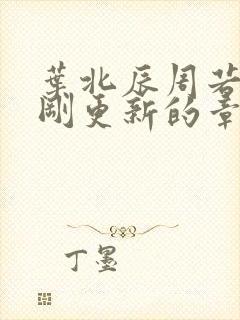 葉北辰周若
剛更新的章
丁墨